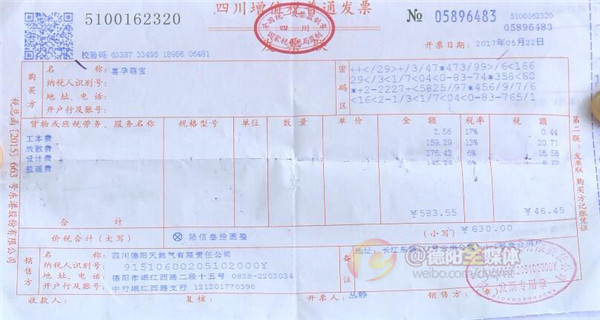 5100162320
四川增值税普通发票
全国统一发票监制章
四川
№ 05896483
5100162320
05896483
校验码 03387 33495 18966 06481
开票日期: 2017年05月22日
购买方
名称: 喜孕萌宝
纳税人识别号:
地址、电话:
开户行及账号:
密码区
++</29>+/3/47*473/99>/6<166
29</3<1/7<04<0-83-74*358<60
*+2-2227-<5825/97*456/9/7/6
<16<2-1/3<1/7<04<0-83-765/1
货物或应税劳务、服务名称 规格型号 单位 数量 单价 金额 税率 税额
工本费 2.56 17% 0.44
159.29 13% 20.71
设计费 6%
监理费
合计 ¥583.55 ¥46.45
价税合计(大写) ⊗陆佰叁拾圆整 (小写) ¥630.00
销售方
名称: 四川德阳天然气有限责任公司
纳税人识别号: 91510600205102000Y
地址、电话: 德阳市岷江西路二段十五号 0838-2203034
开户行及账号: 中行岷江西路 121201770398
收款人:
复核:
开票人: 丛静
第二联:发票联 购买方记账凭证
税总函〔2015〕663号
@德阳全媒体
weibo.com/dyqmt
发票专用章